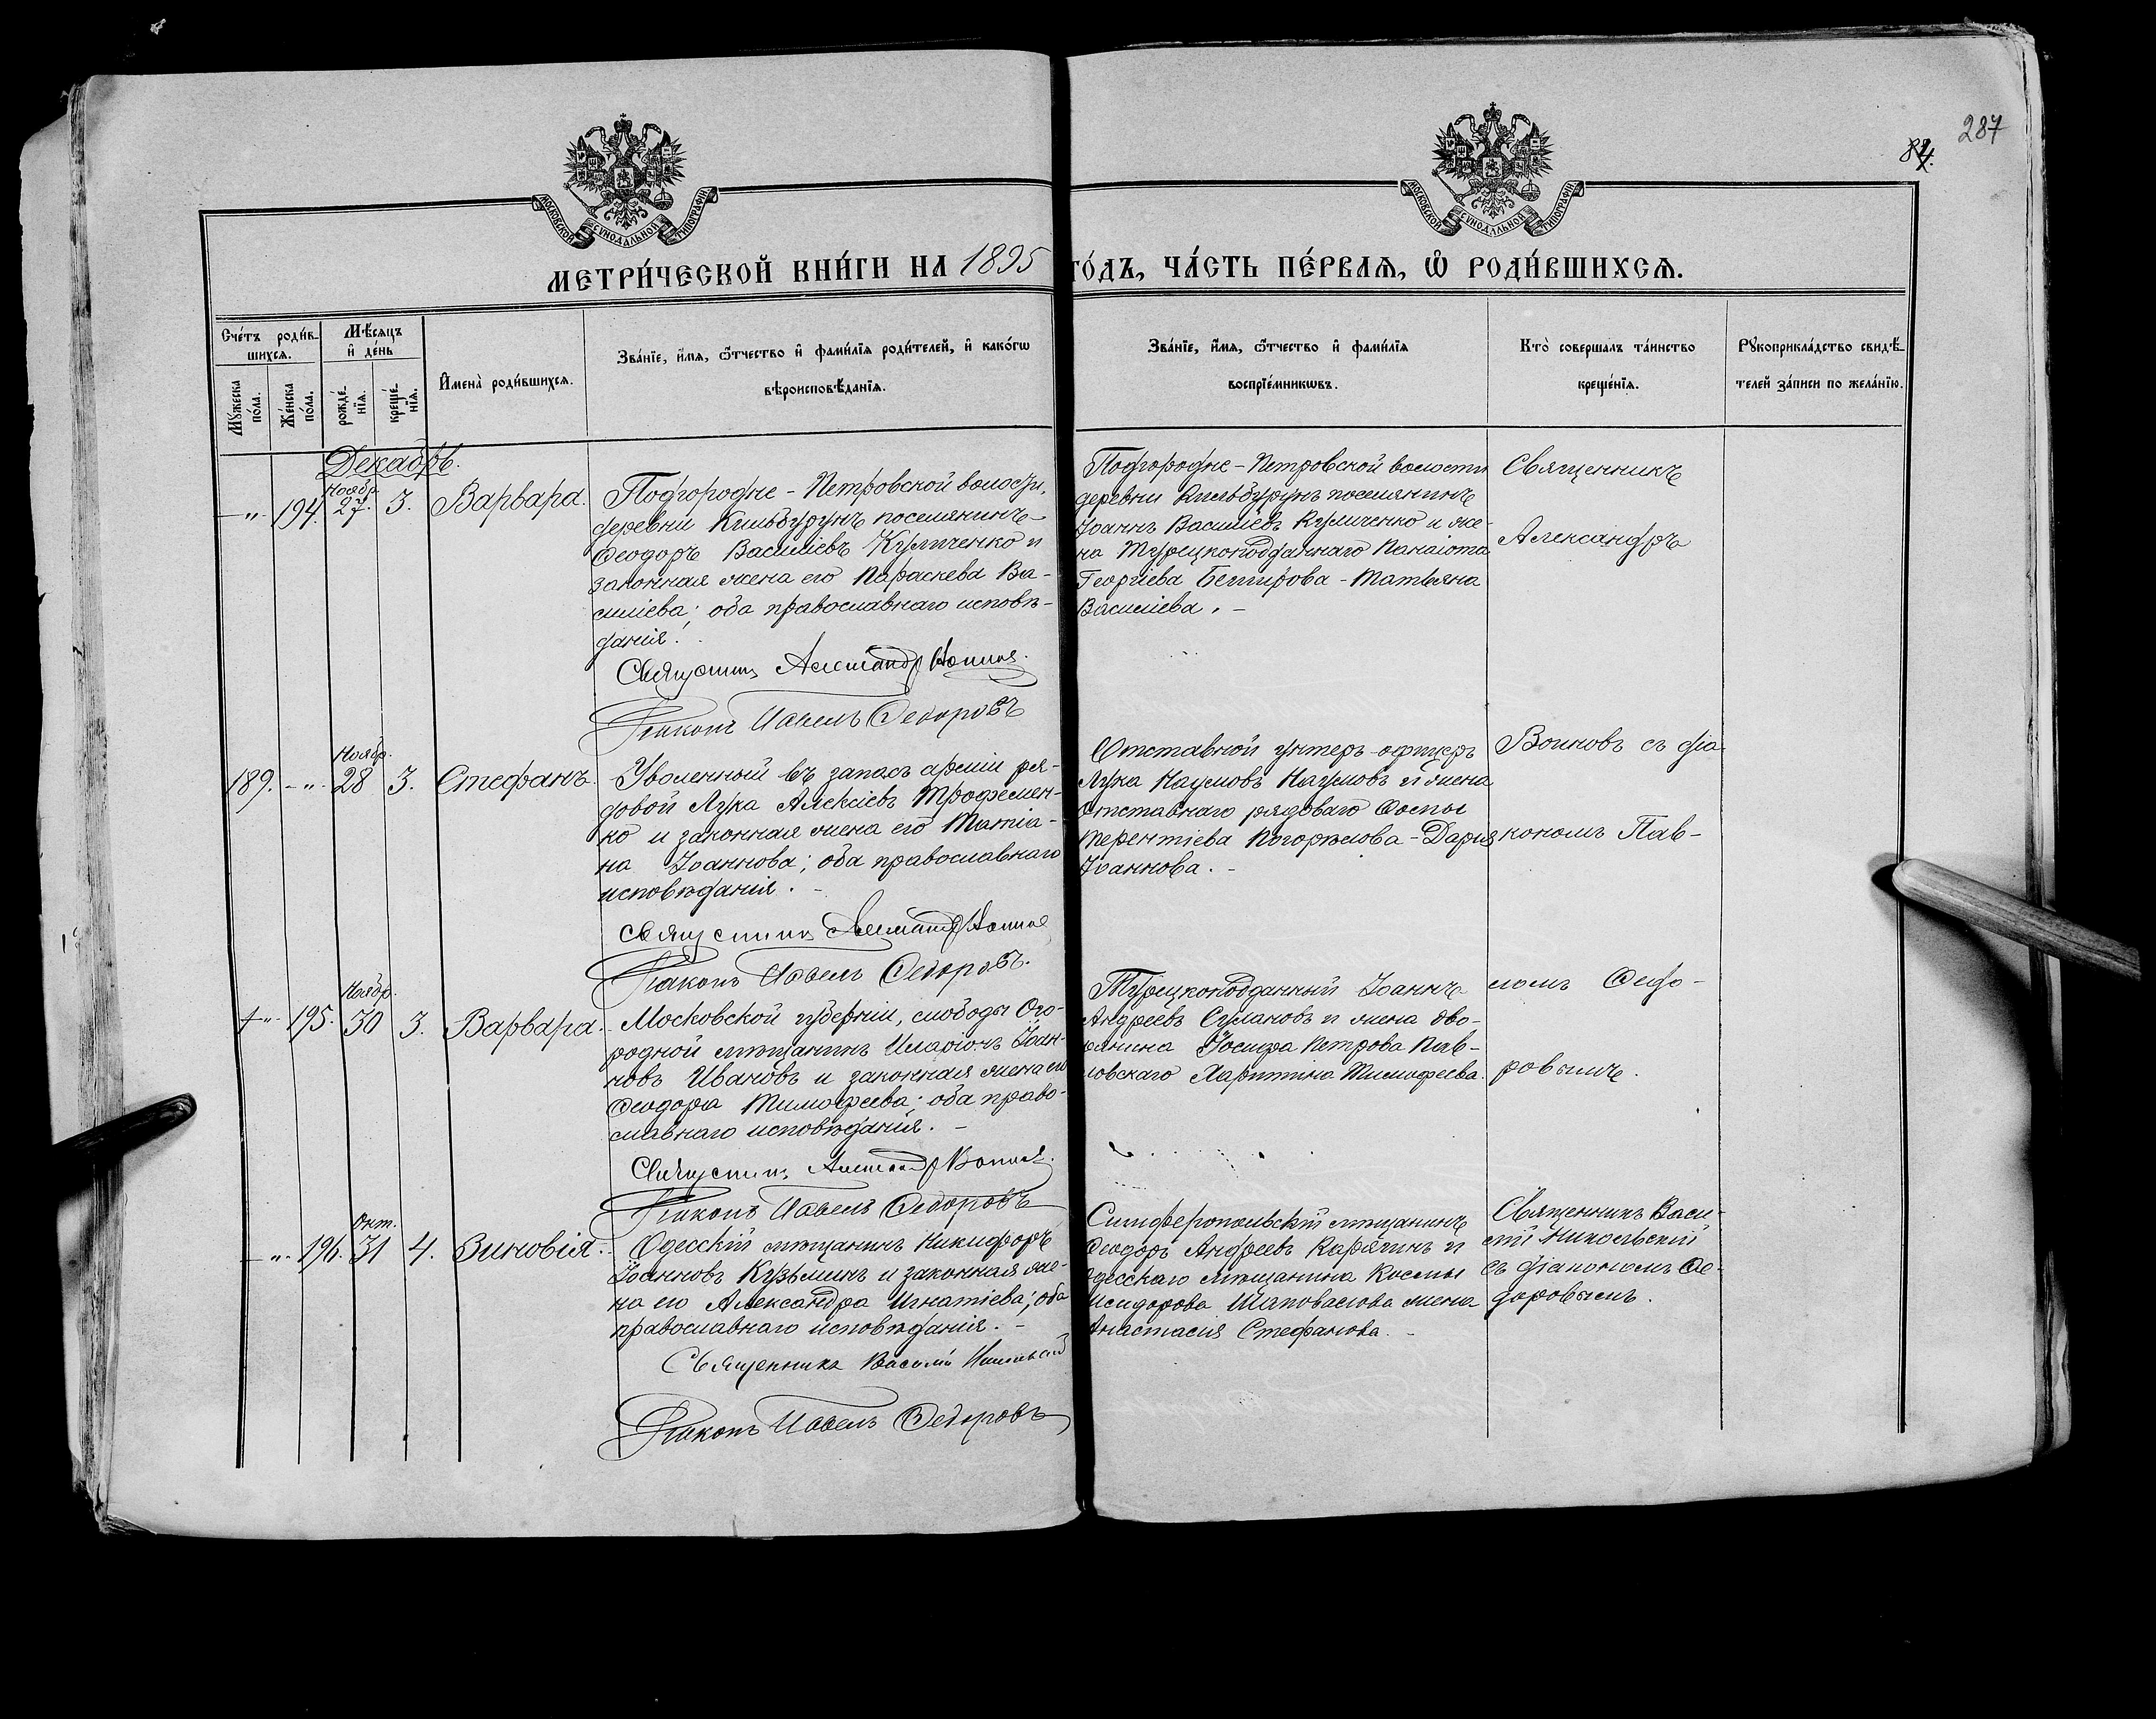 287
84.
МОСКОВСКОЙ СѴНОДАЛЬНОЙ ТИПОГРАФІИ
МОСКОВСКОЙ СѴНОДАЛЬНОЙ ТИПОГРАФІИ
МЕТРИ́ЧЕСКОЙ КНИ́ГИ НА 1895
ГО́ДЪ, ЧА́СТЬ ПЕ́РВАѦ, Ѡ҆ РОДИ́ВШИХСѦ.
Сче́тъ роди́в-
шихсѧ.
Мѣ́сѧцъ
и҆ де́нь
Мꙋ́жеска
по́ла.
Же́нска
по́ла.
рожде́-
нїѧ.
креще́-
нїѧ.
И҆мена̀ роди́вшихсѧ.
Зва́нїе, и҆́мѧ, ѻ҆́тчество и҆ фами́лїѧ роди́телей, и҆ како́гѡ
вѣроисповѣ́данїѧ.
Зва́нїе, и҆́мѧ, ѻ҆́тчество и҆ фами́лїѧ
воспрїе́мникѡвъ.
Кто̀ совершалъ та́инство
креще́нїѧ.
Рꙋкоприкла́дство свидѣ́-
телей за́писи по жела́нїю.
Декабрь.
Ноябр.
-"- 194. 27. 3. Варвара.
Подгородне-Петровской волости,
деревни Кильбурунъ поселянинъ
Ѳеодоръ Василіевъ Куличенко и
законная жена его Параскева Ва-
силіева; оба православнаго исповѣ-
данія.
Священникъ Александр
Діаконъ Павелъ Ѳедоровъ
Подгородне-Петровской волости
деревни Кильбурунъ поселянинъ
Іоаннъ Василіевъ Куличенко и же-
на Турецкоподданнаго Панаіота
Георгіева Бекирова - Татьяна
Василіева. -
Священникъ
Александръ
Ноябр.
189. -"- 28 3. Стефанъ.
Уволенный въ запасъ арміи ря-
довой Лука Алексіевъ Трофемен-
ко и законная жена его Татіа-
на Іоаннова; оба православнаго
исповѣданія. -
Священникъ Александр
Діаконъ Павелъ Ѳедоровъ.
Отставной унтеръ-офицеръ
Лука Наумовъ Наумовъ и жена
отставнаго рядоваго Ѳомы
Терентіева Погорѣлова - Дарія
Іоаннова. -
Воиновъ съ діа-
кономъ Пав-
Ноябр.
+"- 195. 30 3. Варвара.
Московской губерніи, слободы Ого-
родной мѣщанинъ Иларіонъ Іоан-
новъ Ивановъ и законная жена его
Ѳеодора Тимофеева; оба право-
славнаго исповѣданія. -
Священникъ Александр
Діаконъ Павелъ Ѳедоровъ
Турецкоподданный Іоаннъ
Андреевъ Сулановъ и жена дво-
рянина Іосифа Петрова Пав-
ловскаго Харитина Тимофеева.
ломъ Ѳедо-
ровымъ.
Окт.
-"- 196. 31 4. Зиновія.
Одесскій мѣщанинъ Никифоръ
Іоанновъ Кузьминъ и законная же-
на его Александра Игнатіева; оба
православнаго исповѣданія. -
Священникъ Василій Никольскій
Діаконъ Павелъ Ѳедоровъ
Симферопольскій мѣщанинъ
Ѳеодоръ Андреевъ Карягинъ и
одесскаго мѣщанина Космы
Исидорова Шаповалова жена
Анастасія Стефанова. -
Священникъ Васи-
лій Никольскій
съ діакономъ Ѳе-
доровымъ.